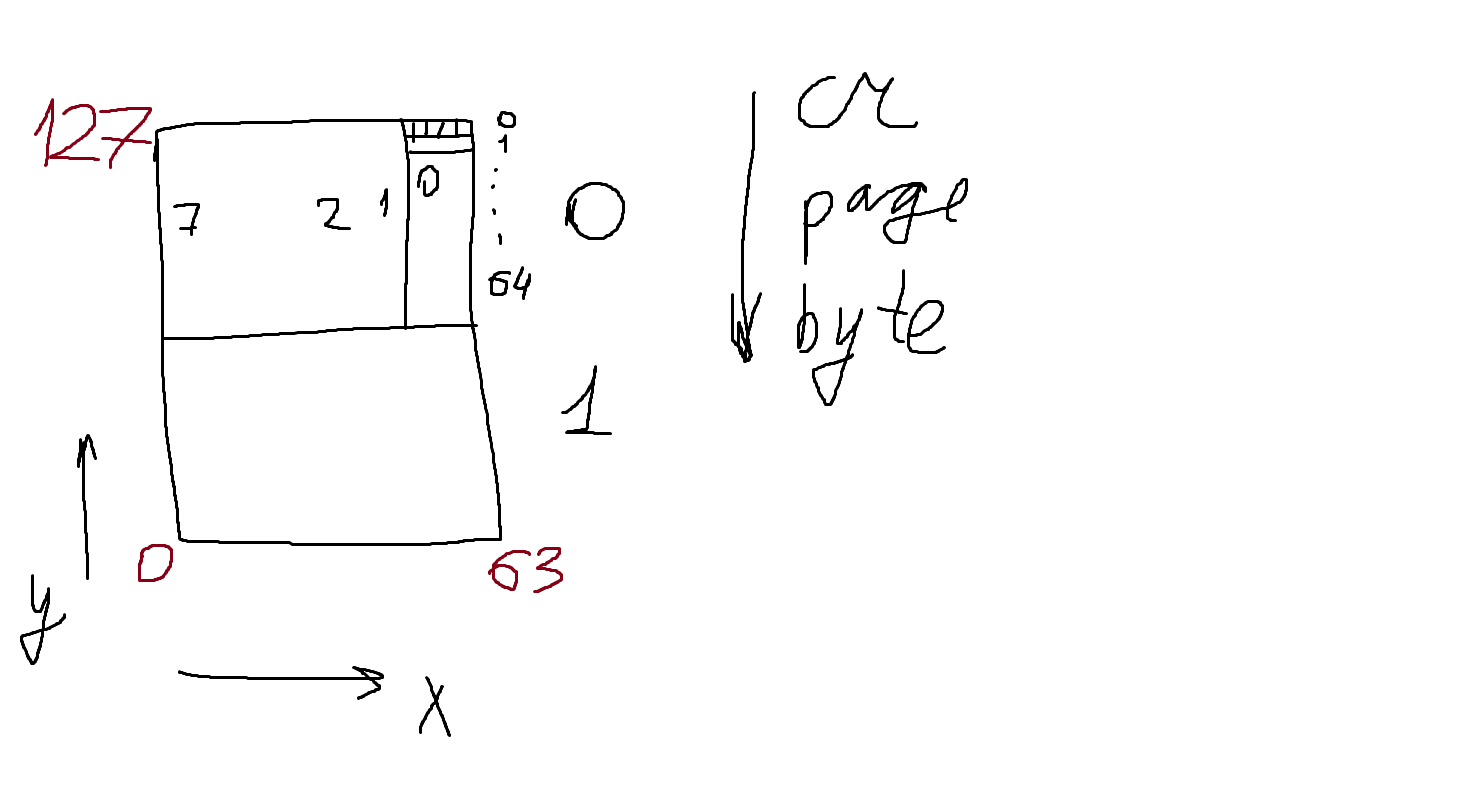 127
0
1
0
7 2 1
64
0
1
0
63
y
x
cr
page
byte